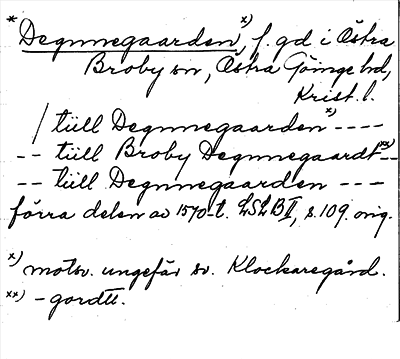 * Degnnegaarden x), f. gd i Östra
Broby sn, Östra Göinge hd,
Krist. l.
/ tüll Degnnegaarden x) ----
-- tüll Broby Degnnegaardt xx) --
-- tüll Degnnegaarden ---
förra delen av 1570-t. LSLB I, s. 109. orig.
x) motsv. ungefär sv. Klockaregård.
xx) - gordtt.